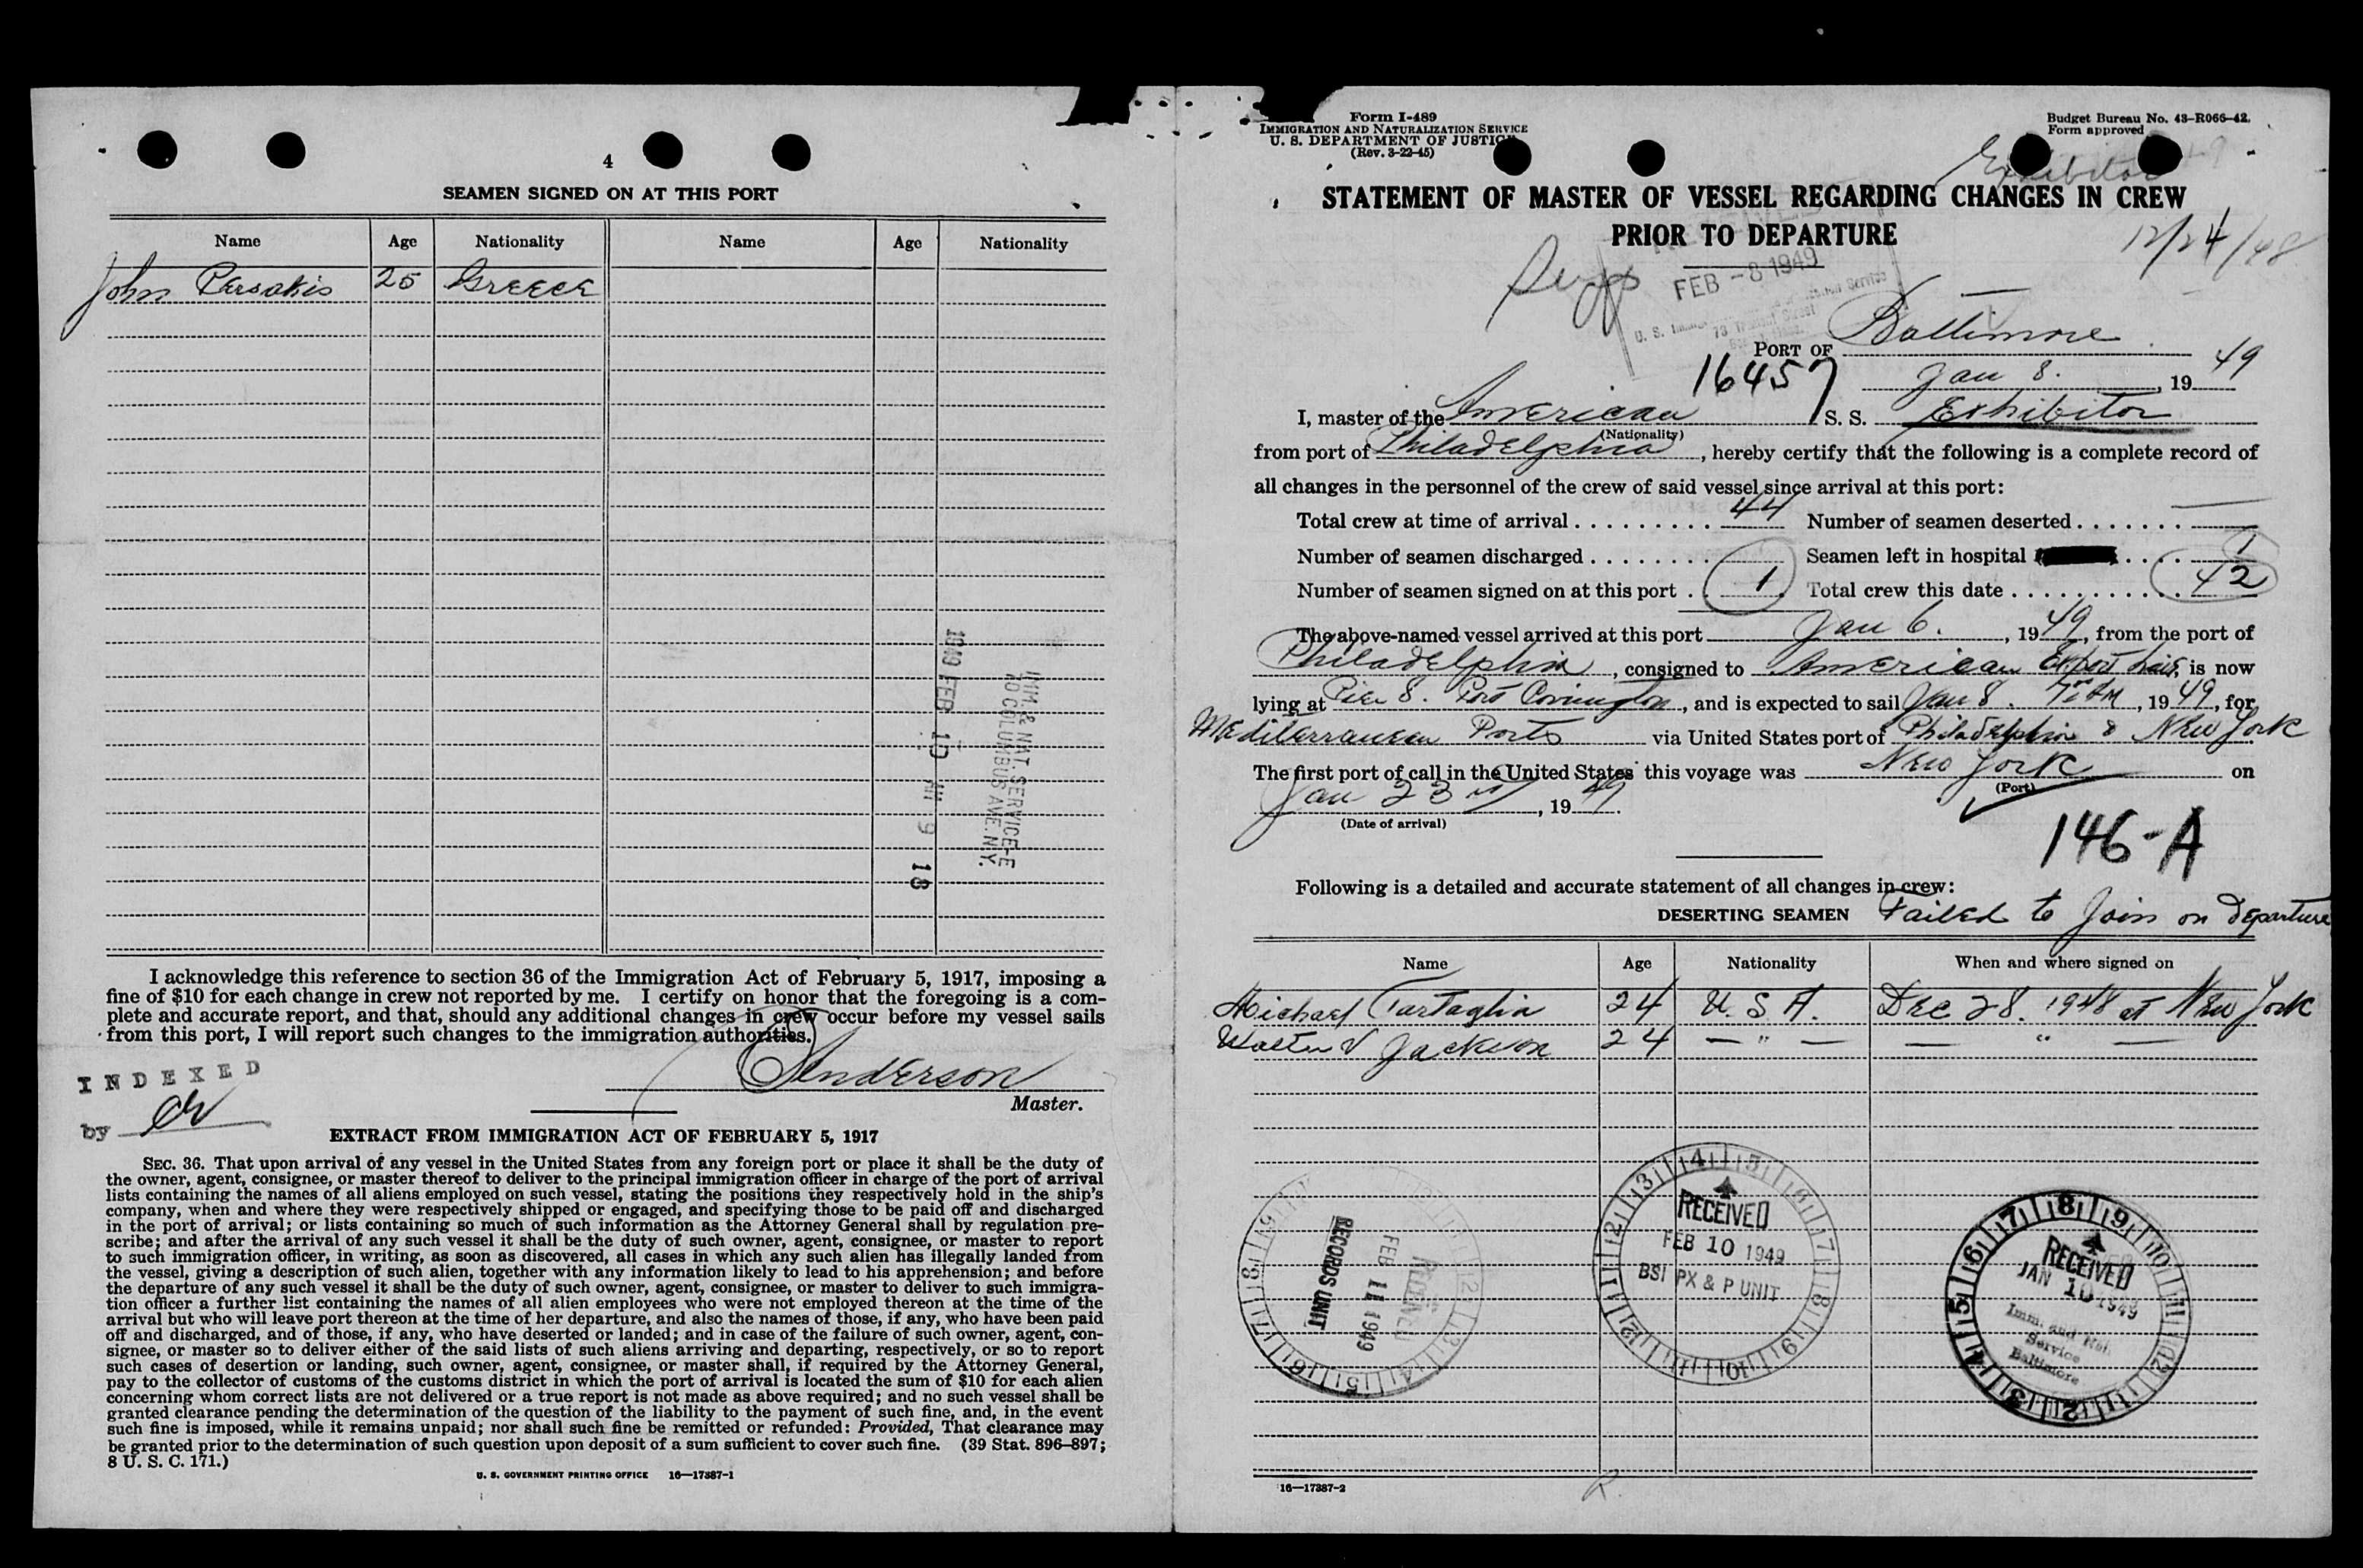 4
SEAMEN SIGNED ON AT THIS PORT
Name Age Nationality Name Age Nationality
John Persakis 25 Greece
1949 FEB 10 AM 9 18
IMM. & NAT. SERVICE-E
70 COLUMBUS AVE. N.Y.
I acknowledge this reference to section 36 of the Immigration Act of February 5, 1917, imposing a
fine of $10 for each change in crew not reported by me. I certify on honor that the foregoing is a com-
plete and accurate report, and that, should any additional changes in crew occur before my vessel sails
from this port, I will report such changes to the immigration authorities.
Anderson
Master.
INDEXED
by
EXTRACT FROM IMMIGRATION ACT OF FEBRUARY 5, 1917
SEC. 36. That upon arrival of any vessel in the United States from any foreign port or place it shall be the duty of
the owner, agent, consignee, or master thereof to deliver to the principal immigration officer in charge of the port of arrival
lists containing the names of all aliens employed on such vessel, stating the positions they respectively hold in the ship's
company, when and where they were respectively shipped or engaged, and specifying those to be paid off and discharged
in the port of arrival; or lists containing so much of such information as the Attorney General shall by regulation pre-
scribe; and after the arrival of any such vessel it shall be the duty of such owner, agent, consignee, or master to report
to such immigration officer, in writing, as soon as discovered, all cases in which any such alien has illegally landed from
the vessel, giving a description of such alien, together with any information likely to lead to his apprehension; and before
the departure of any such vessel it shall be the duty of such owner, agent, consignee, or master to deliver to such immigra-
tion officer a further list containing the names of all alien employees who were not employed thereon at the time of the
arrival but who will leave port thereon at the time of her departure, and also the names of those, if any, who have been paid
off and discharged, and of those, if any, who have deserted or landed; and in case of the failure of such owner, agent, con-
signee, or master so to deliver either of the said lists of such aliens arriving and departing, respectively, or so to report
such cases of desertion or landing, such owner, agent, consignee, or master shall, if required by the Attorney General,
pay to the collector of customs of the customs district in which the port of arrival is located the sum of $10 for each alien
concerning whom correct lists are not delivered or a true report is not made as above required; and no such vessel shall be
granted clearance pending the determination of the question of the liability to the payment of such fine, and, in the event
such fine is imposed, while it remains unpaid; nor shall such fine be remitted or refunded: Provided, That clearance may
be granted prior to the determination of such question upon deposit of a sum sufficient to cover such fine. (39 Stat. 896–897;
8 U. S. C. 171.)
U. S. GOVERNMENT PRINTING OFFICE 16—17387-1
Form I-489
IMMIGRATION AND NATURALIZATION SERVICE
U. S. DEPARTMENT OF JUSTICE
(Rev. 3-22-45)
Budget Bureau No. 43-R066-42.
Form approved
Exhibitor
STATEMENT OF MASTER OF VESSEL REGARDING CHANGES IN CREW
PRIOR TO DEPARTURE
12/24/48
FEB -8 1949
PORT OF Baltimore
16457
Jan 8. , 19 49
I, master of the American S. S. Exhibitor
(Nationality)
from port of Philadelphia , hereby certify that the following is a complete record of
all changes in the personnel of the crew of said vessel since arrival at this port:
Total crew at time of arrival 44 Number of seamen deserted —
Number of seamen discharged Seamen left in hospital 1
Number of seamen signed on at this port 1 Total crew this date 42
The above-named vessel arrived at this port Jan 6. , 19 49, from the port of
Philadelphia , consigned to American Export Lines, is now
lying at Pier 8. Port Covington , and is expected to sail Jan 8. 7 AM , 19 49, for
Mediterranean Ports via United States port of Philadelphia & New York
The first port of call in the United States this voyage was New York on
(Port)
Jan 23 , 19 49.
(Date of arrival)
146-A
Following is a detailed and accurate statement of all changes in crew:
DESERTING SEAMEN Failed to Join on Departure
Name Age Nationality When and where signed on
Michael Tartaglia 24 U. S. A. Dec 28. 1948 at New York
Walter V Jackson 24 — " — — " —
RECEIVED
FEB 11 1949
RECORDS UNIT
RECEIVED
FEB 10 1949
BSI PX & P UNIT
RECEIVED
JAN 10 1949
Imm. and Nat.
Service
Baltimore
16—17387-2